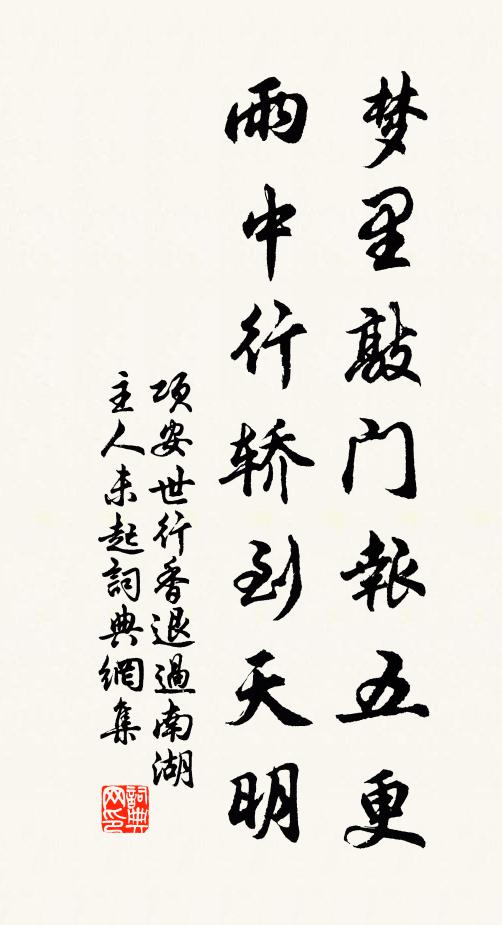 梦里敲门報五更
雨中行轿到天明
项安世行香退過南湖
主人未起詞典網集
詞典网印